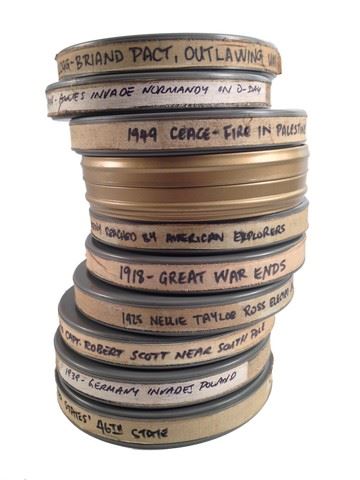 GG-BRIAND PACT, OUTLAWING
INVADE NORMANDY ON D-DAY
1949 CEACE-FIRE IN PALESTINE
REACHED BY AMERICAN EXPLORERS
1918-GREAT WAR ENDS
1925 NELLIE TAYLOE ROSS
CAPT. ROBERT SCOTT NEAR SOUTH POLE
1939-GERMANY INVADES POLAND
STATES' 46TH STATE